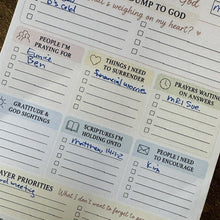 DUMP TO GOD
what's weighing on my heart?
PEOPLE I'M
PRAYING FOR
Eunice
Ben
THINGS I NEED
TO SURRENDER
financial worries
PRAYERS WAITING
ON ANSWERS
GRATITUDE &
GOD SIGHTINGS
SCRIPTURES I'M
HOLDING ONTO
PEOPLE I NEED
TO ENCOURAGE
Kim
PRAYER PRIORITIES
meeting
What I don't want to forget to pray